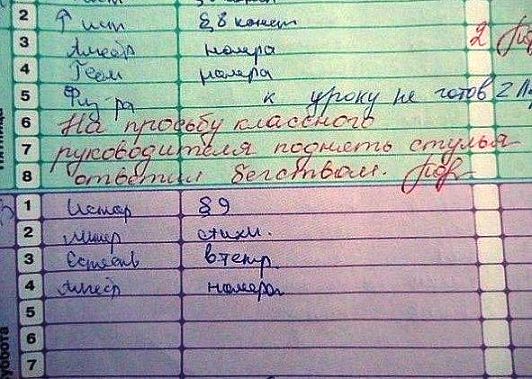 2 ист § 8 конспект
3 Алгебр номера 2
4 Геом номера
5 Физ-ра к уроку не готов 2
6 На просьбу классного
7 руководителя поднять стулья
8 ответил бегством.
1 Истор § 9
2 Литер стихи.
3 Естеств в тетр.
4 Алгебр номера
5
6
7